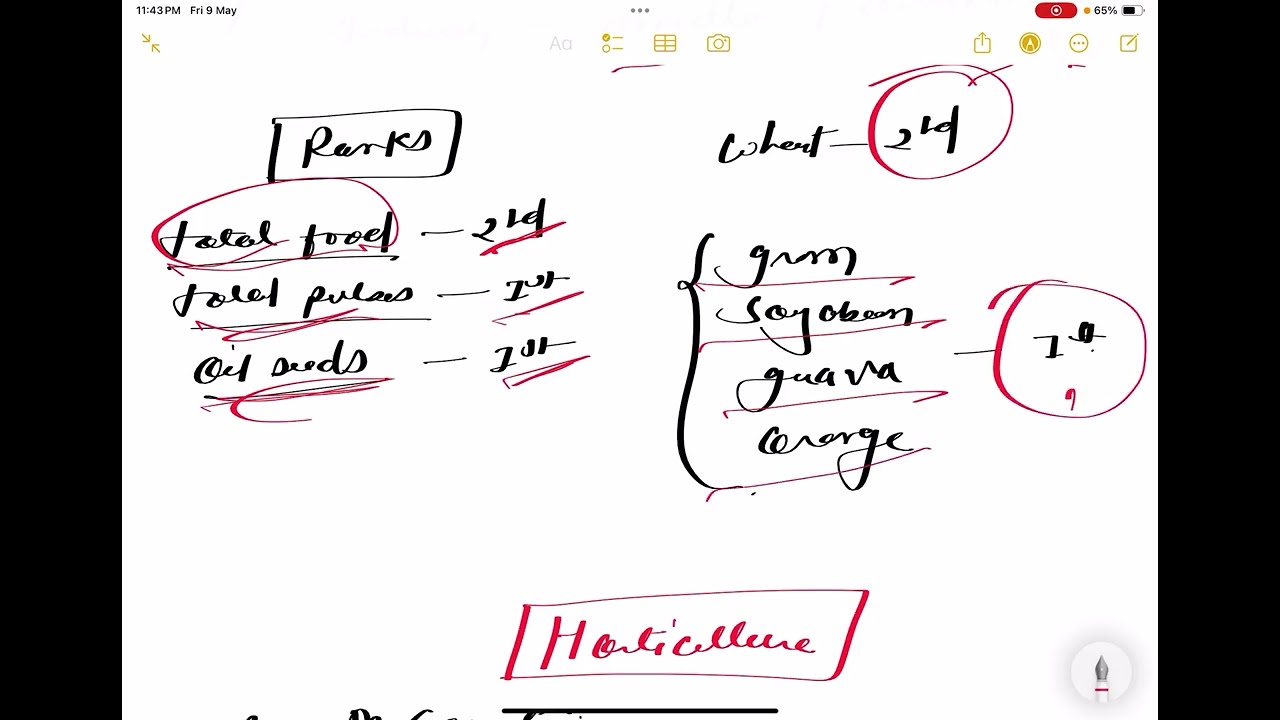 11:43 PM Fri 9 May
65%
Aa
Ranks
total food — 2nd
total pulses — 1st
Oil seeds — 1st
wheat — 2nd
gram
soyabean
guava
orange
— 1st
Horticulture